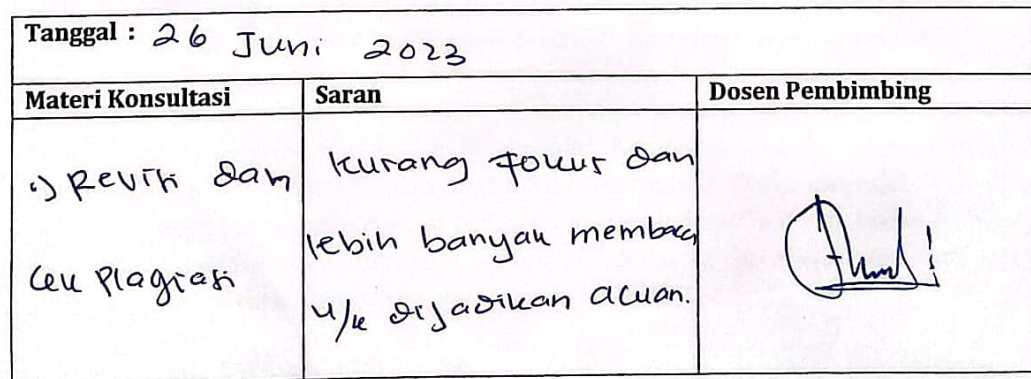 Tanggal : 26 Juni 2023
Materi Konsultasi Saran Dosen Pembimbing
•) Revisi dan
cek Plagiasi
kurang fokus dan
lebih banyak membaca
u/k dijadikan acuan.